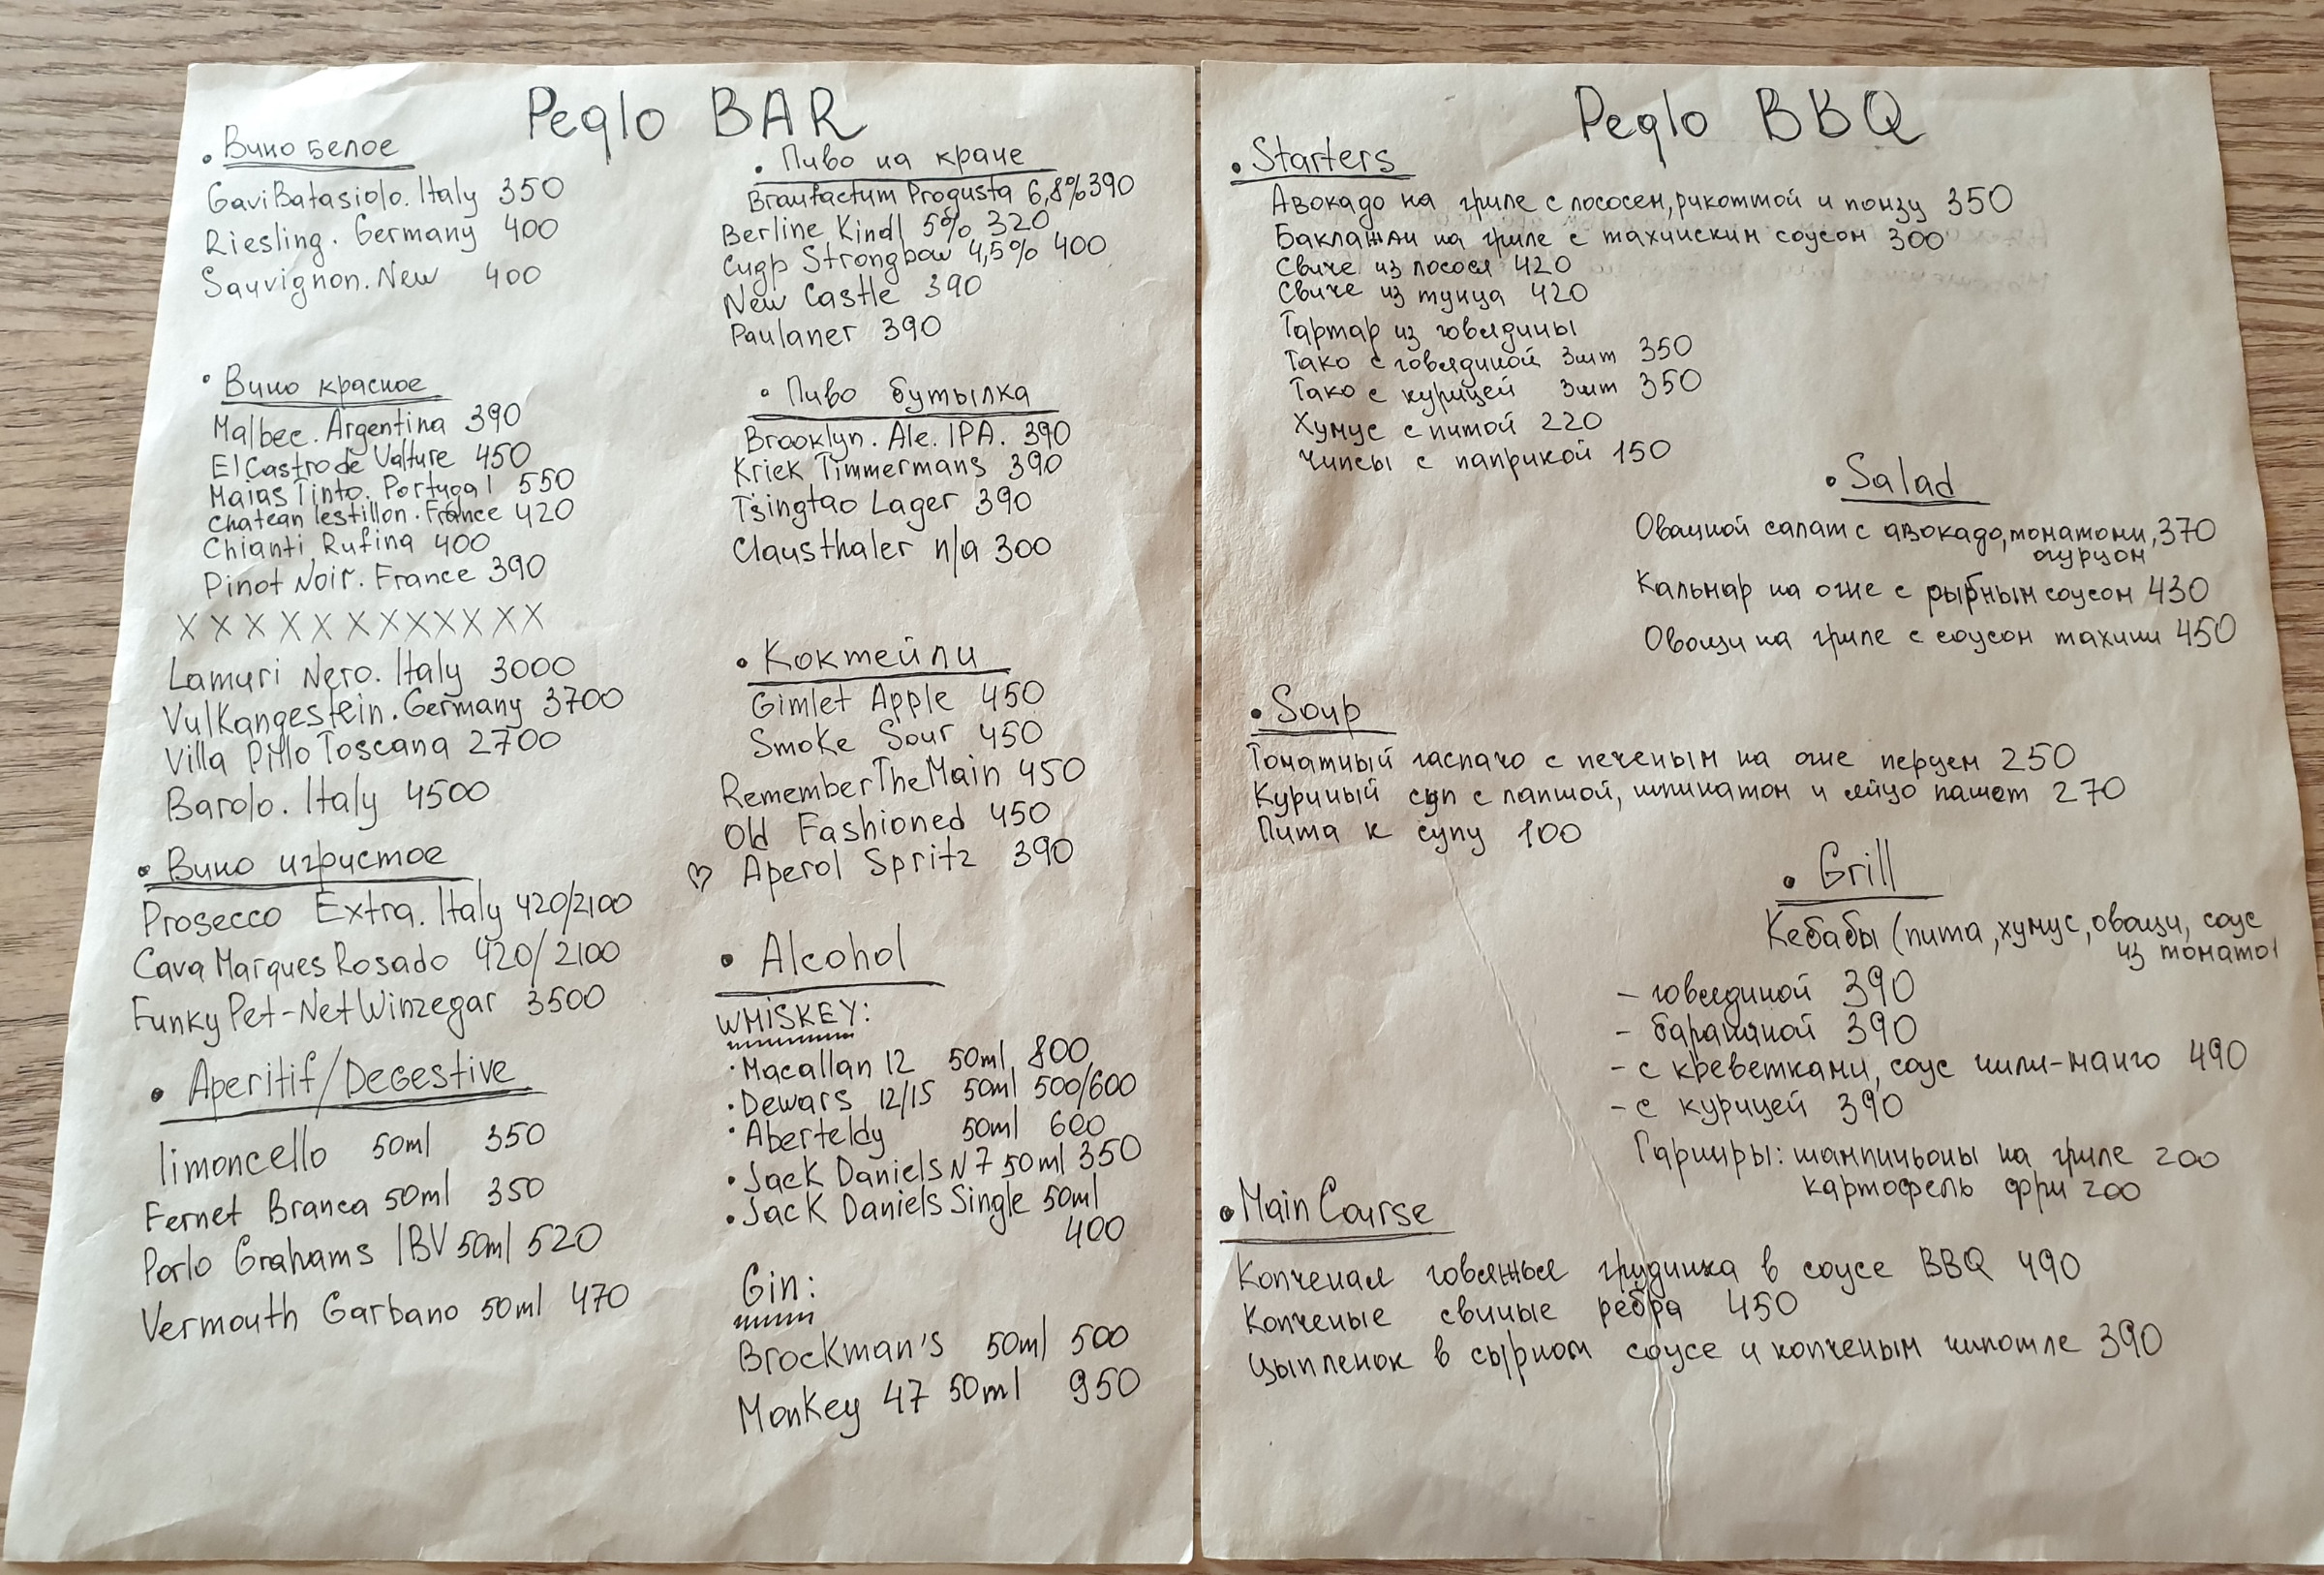 Peqlo BAR
• Вино белое
Gavi Batasiolo. Italy 350
Riesling. Germany 400
Sauvignon. New 400
• Вино красное
Malbec. Argentina 390
El Castro de Valture 450
Maias Tinto. Portugal 550
Chatean lestillon. France 420
Chianti Rufina 400
Pinot Noir. France 390
X X X X X X X X X X X X
Lamuri Nero. Italy 3000
Vulkangestein. Germany 3700
Villa Pillo Toscana 2700
Barolo. Italy 4500
• Вино игристое
Prosecco Extra. Italy 420/2100
Cava Marques Rosado 420/2100
Funky Pet-Net Winzegar 3500
• Aperitif/Degestive
limoncello 50ml 350
Fernet Branca 50ml 350
Porlo Grahams 50ml 520
Vermouth Garbano 50ml 470
• Пиво на кране
Braufactum Progusta 6,8% 390
Berline Kindl 5% 320
Сидр Strongbow 4,5% 400
New Castle 390
Paulaner 390
• Пиво бутылка
Brooklyn. Ale. IPA. 390
Kriek Timmermans 390
Tsingtao Lager 390
Clausthaler n/a 300
• Коктейли
Gimlet Apple 450
Smoke Sour 450
Remember The Main 450
Old Fashioned 450
♡ Aperol Spritz 390
• Alcohol
WHISKEY:
• Macallan 12 50ml 800
• Dewars 12/15 50ml 500/600
• Aberteldy 50ml 600
• Jack Daniels N7 50ml 350
• Jack Daniels Single 50ml
400
Gin:
Brockman's 50ml 500
Monkey 47 50ml 950
Peqlo BBQ
• Starters
Авокадо на гриле с лососем, рикоттой и понзу 350
Баклажан на гриле с тахинским соусом 300
Свиче из лосося 420
Свиче из тунца 420
Тартар из говядины
Тако с говядиной 3шт 350
Тако с курицей 3шт 350
Хумус с питой 220
Чипсы с паприкой 150
• Salad
Овощной салат с авокадо, томатами, 370
огурцом
Кальмар на огне с рыбным соусом 430
Овощи на гриле с соусом тахини 450
• Soup
Томатный гаспачо с печеным на огне перцем 250
Куриный суп с лапшой, шпинатом и яйцо пашот 270
Пита к супу 100
• Grill
Кебабы (пита, хумус, овощи, соус
из томато
- говядиной 390
- бараниной 390
- с креветками, соус чили-манго 490
- с курицей 390
Гарниры: шампиньоны на гриле 200
картофель фри 200
• Main Course
Копченая говяжья грудинка в соусе BBQ 490
Копченые свиные ребра 450
Цыпленок в сырном соусе и копченым чипотле 390